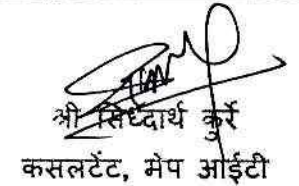 श्री सिध्दार्थ कुर्रे
कसलटेंट, मेप आईटी